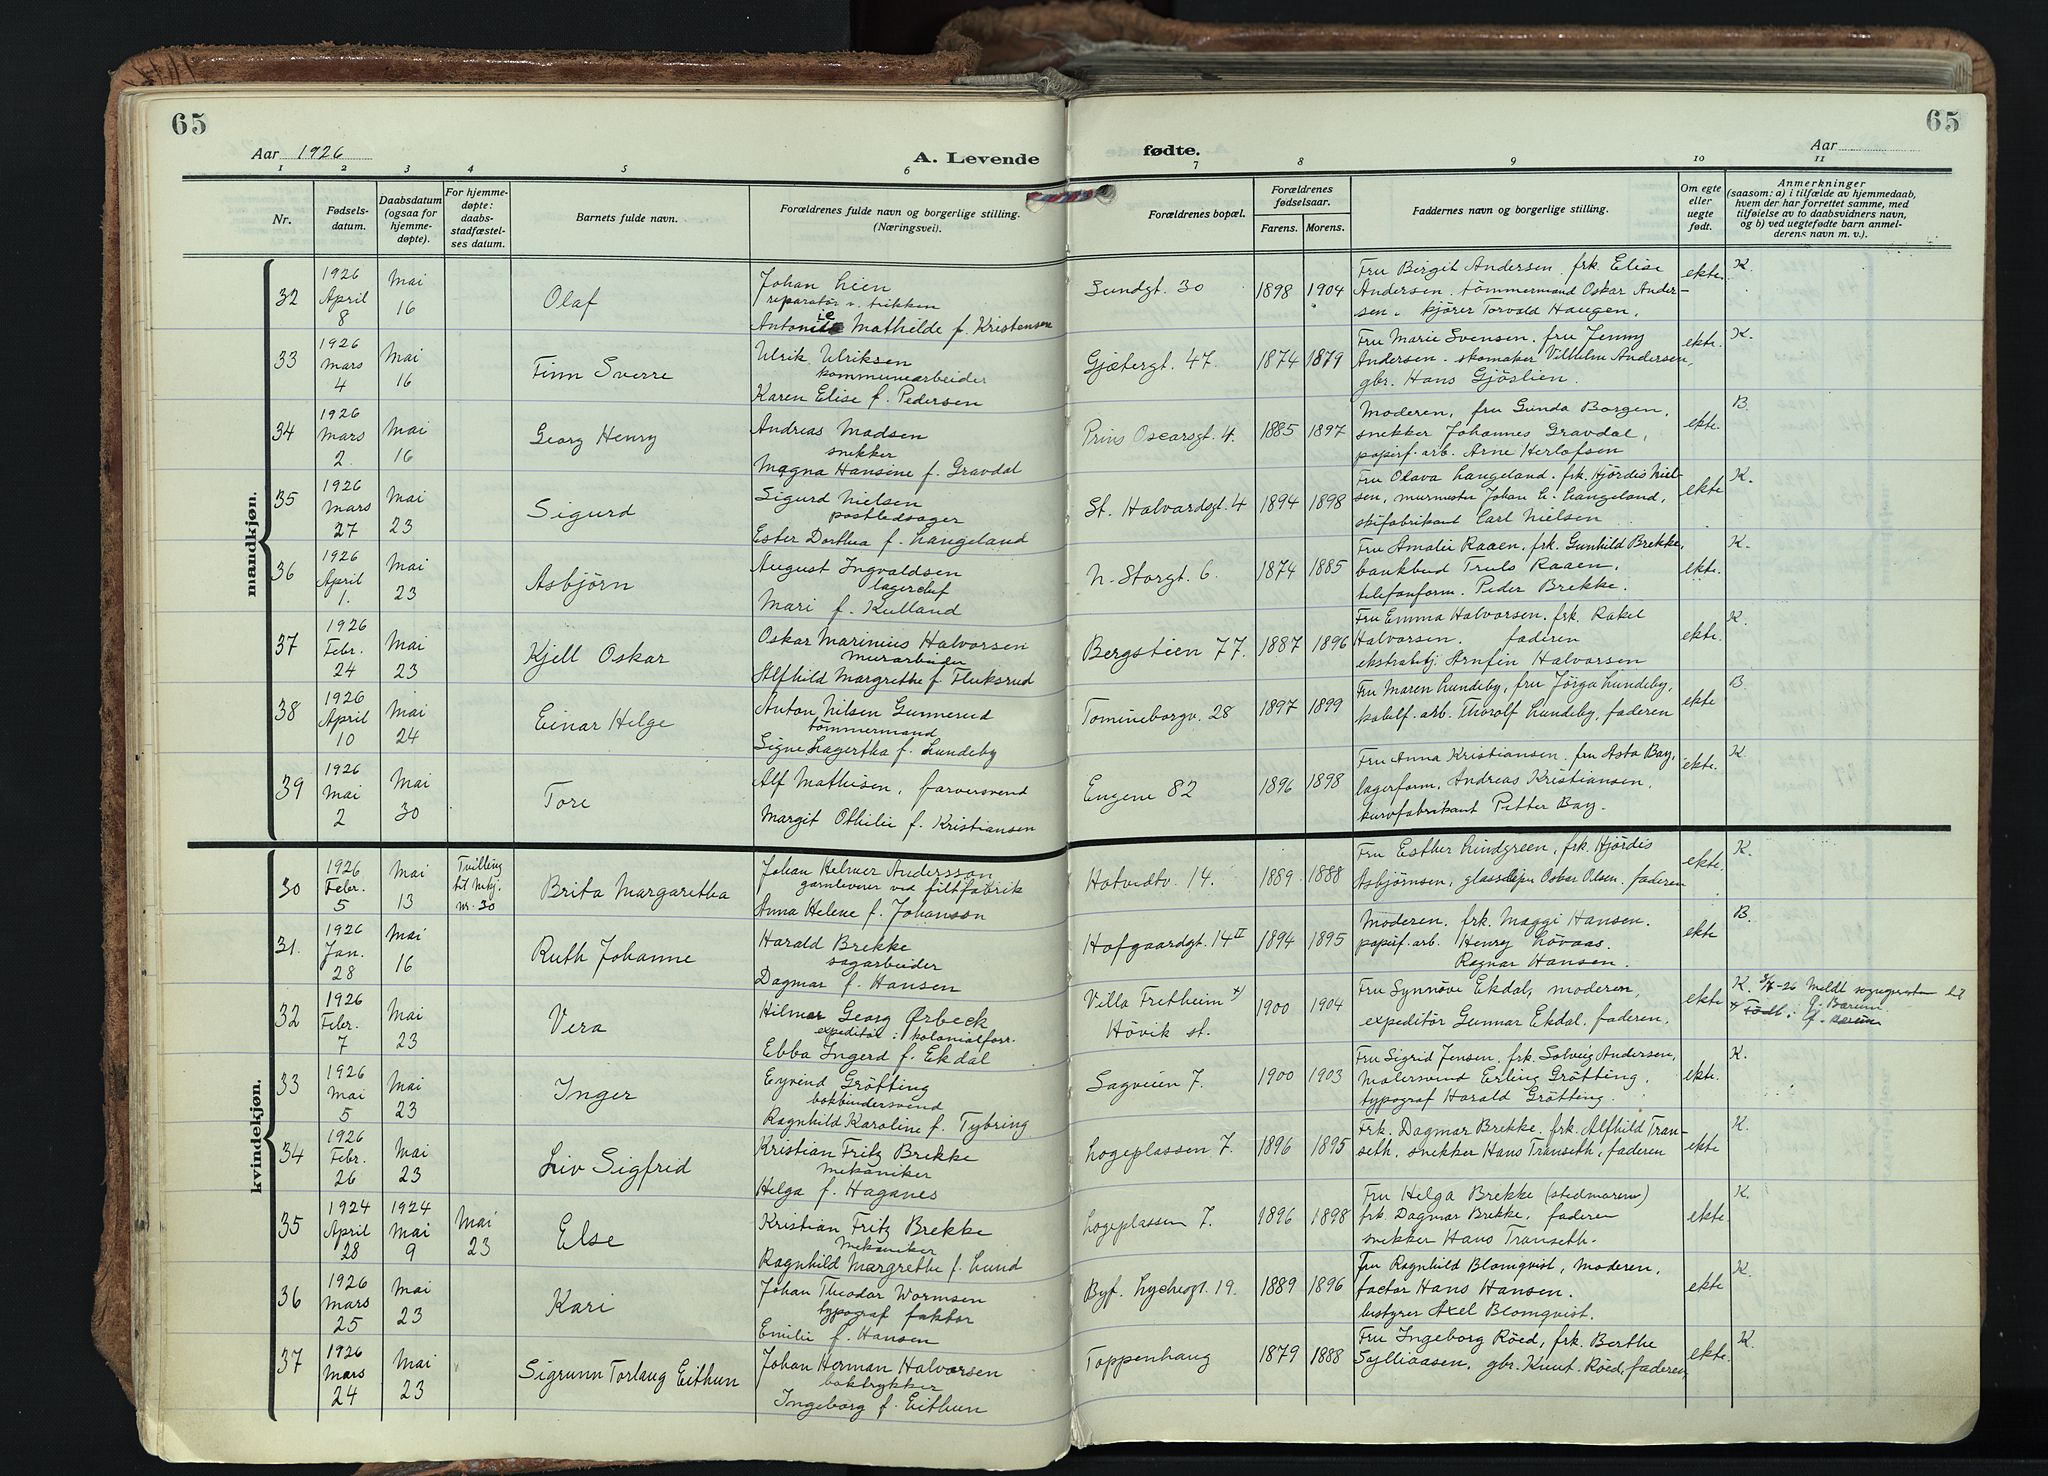 65
Aar 1926
A. Levende
fødte.
Aar
65
1 2 3 4 5 6 7 8 9 10 11
Nr.
Fødsels-
datum.
Daabsdatum
(ogsaa for
hjemme-
døpte).
For hjemme-
døpte:
daabs-
stadfæstel-
ses datum.
Barnets fulde navn.
Forældrenes fulde navn og borgerlige stilling.
(Næringsvei).
Forældrenes bopæl.
Forældrenes
fødselsaar.
Farens. Morens.
Faddernes navn og borgerlige stilling.
Om egte
eller
uegte
født.
Anmerkninger
(saasom: a) i tilfælde av hjemmedaab,
hvem der har forrettet samme, med
tilføielse av to daabsvidners navn,
og b) ved uegtefødte barn anmel-
derens navn m. v.).
mandkjøn.
32
1926
April
8
Mai
16
Olaf
Johan Lien
reparatør v. trikken
Antonie Mathilde f. Kristensen
Sundgt. 30
1898 1904
Fru Birgit Andersen. frk. Elise
Andersen. tømmermand Oskar Ander-
sen. kjører Torvald Haugen.
ekte
K.
33
1926
Mars
4
Mai
16
Finn Sverre
Ulrik Ulriksen
kommunearbeider
Karen Elise f. Pedersen
Gjætergt. 47.
1874 1879
Fru Marie Svensen. fru Jenny
Andersen. skomaker Vilhelm Andersen,
gbr. Hans Gjøslien.
ekte.
K.
34
1926
Mars
2.
Mai
16
Georg Henry
Andreas Madsen
snekker
Magna Hansine f. Gravdal
Prins Oscarsgt. 4.
1885 1897
Moderen, fru Gunda Borgen,
snekker Johannes Gravdal,
papirf. arb. Arne Herlofsen
ekte.
B.
35
1926
Mars
27
Mai
23
Sigurd
Sigurd Nielsen
postledsager
Ester Dorthea f. Langeland
St. Halvardsgt. 4
1894 1898
Fru Olava Langeland. frk. Hjørdis Niel-
sen, murmester Johan L. Langeland,
skifabrikant Carl Nielsen
ekte
K.
36
1926
April
1.
Mai
23
Asbjørn
August Ingvaldsen
lagerchef
Mari f. Kulland
N. Storgt. 6.
1874 1885
Fru Amalie Raaen. frk. Gunhild Brekke,
bankbud Truls Raaen,
telefonform. Peder Brekke.
ekte.
K.
37
1926
Febr.
24
Mai
23
Kjell Oskar
Oskar Marinius Halvorsen
murarbeider
Alfhild Margrethe f. Fluksrud
Bergstien 77.
1887 1896
Fru Emma Halvorsen. frk. Rakel
Halvorsen. faderen
ekstrabetj. Arnfin Halvorsen
ekte.
K.
38
1926
April
10
Mai
24
Einar Helge
Anton Nilsen Gunnerud
tømmermand
Signe Lagertha f. Lundeby
Tomineborgv. 28
1897 1899
Fru Maren Lundeby, fru Jørga Lundeby,
kabelf. arb. Thorolf Lundeby, faderen
ekte
B.
39
1926
Mai
2
Mai
30
Tore
Alf Mathisen, farversvend
Margit Othilie f. Kristiansen
Engene 82
1896 1898
Fru Anna Kristiansen. fru Asta Bay,
lagerform. Andreas Kristiansen,
kurvfabrikant Petter Bay.
ekte.
K.
kvindekjøn.
30
1926
Febr.
5
Mai
13
Tvilling
til Mkj.
nr. 30
Brita Margaretha
Johan Helmer Andersson
garnleverer ved filtfabrik
Anna Helene f. Johanson
Hotvedtv. 14.
1889 1888
Fru Esther Lindgreen, frk. Hjørdis
Asbjørnsen, glassliper Oskar Olsen, faderen
ekte.
K.
31.
1926
Jan.
28
Mai
16
Ruth Johanne
Harald Brekke
sagarbeider
Dagmar f. Hansen
Hofgaardgt. 14 II
1894 1895
Moderen. frk. Maggi Hansen.
papirf. arb. Henry Løvaas.
Ragnar Hansen.
ekte
B.
32
1926
Febr.
7
Mai
23
Vera
Hilmar Georg Ørbeck
expeditør i kolonialforr.
Ebba Ingerd f. Ekdal
Villa Fretheim x)
Høvik st.
1900 1904
Fru Synnøve Ekdal, moderen,
expeditør Gunnar Ekdal. faderen.
ekte
K. Meldt sognepresten til
Ø. Bærum
x) Født i Ø. Bærum
33
1926
Mai
5
Mai
23
Inger
Eyvind Grøtting
bokbindersvend
Ragnhild Karoline f. Tybring
Sagveien 7.
1900 1903
Fru Sigrid Jensen. frk. Solveig Andersen,
malersvend Erling Grøtting,
typograf Harald Grøtting.
ekte.
K.
34
1926
Febr.
26
Mai
23
Liv Sigfrid
Kristian Fritz Brekke
mekaniker
Helga f. Haganes
Logeplassen 7.
1896 1895
Frk. Dagmar Brekke. frk. Alfhild Tran-
seth, snekker Hans Transeth, faderen
ekte
K.
35
1924
April
28
1924
Mai
9
Mai
23
Else
Kristian Fritz Brekke
mekaniker
Ragnhild Margrethe f. Lund
Logeplassen 7.
1896 1898
Fru Helga Brekke (stedmoren)
frk. Dagmar Brekke, faderen
snekker Hans Transeth.
ekte
K.
36
1926
Mars
25
Mai
23
Kari
Johan Theodor Wormsen
typograf faktor
Emilie f. Hansen
Byf. Lychesgt. 19.
1889 1896
Fru Ragnhild Blomqvist, moderen,
factor Hans Hansen.
bestyrer Axel Blomqvist.
ekte
K.
37
1926
Mars
24
Mai
23
Sigrunn Torlaug Eithun
Johan Herman Halvorsen
boktrykker
Ingeborg f. Eithun
Toppenhaug
1879 1888
Fru Ingeborg Røed, frk. Berthe
Sylliaasen, gbr. Knut Røed, faderen
ekte.
K.